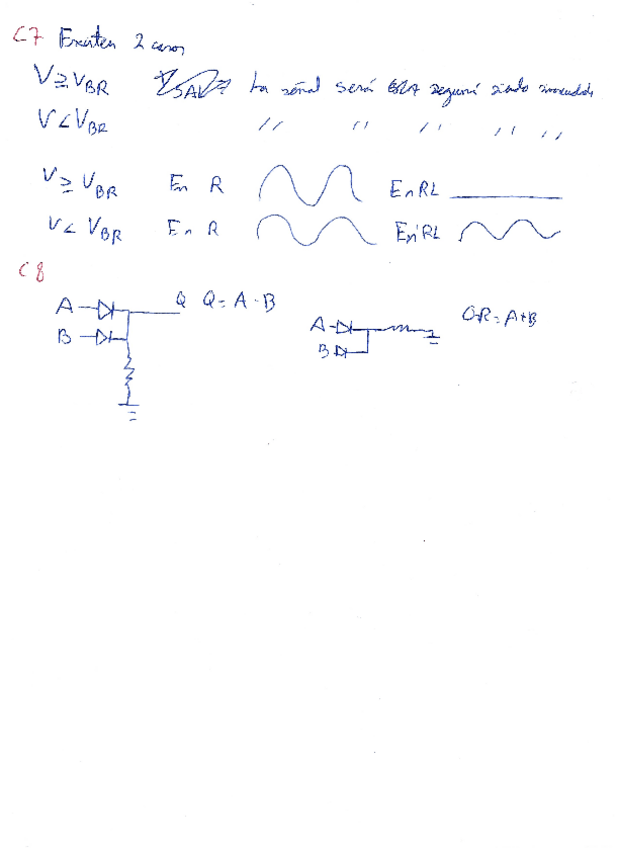 C7 Existen 2 casos
V ≥ VBR La señal será seguirá siendo
V < VBR // // // // //
V ≥ VBR En R En RL
V < VBR En R En RL
C8
A Q Q = A · B
B
A OR = A+B
B